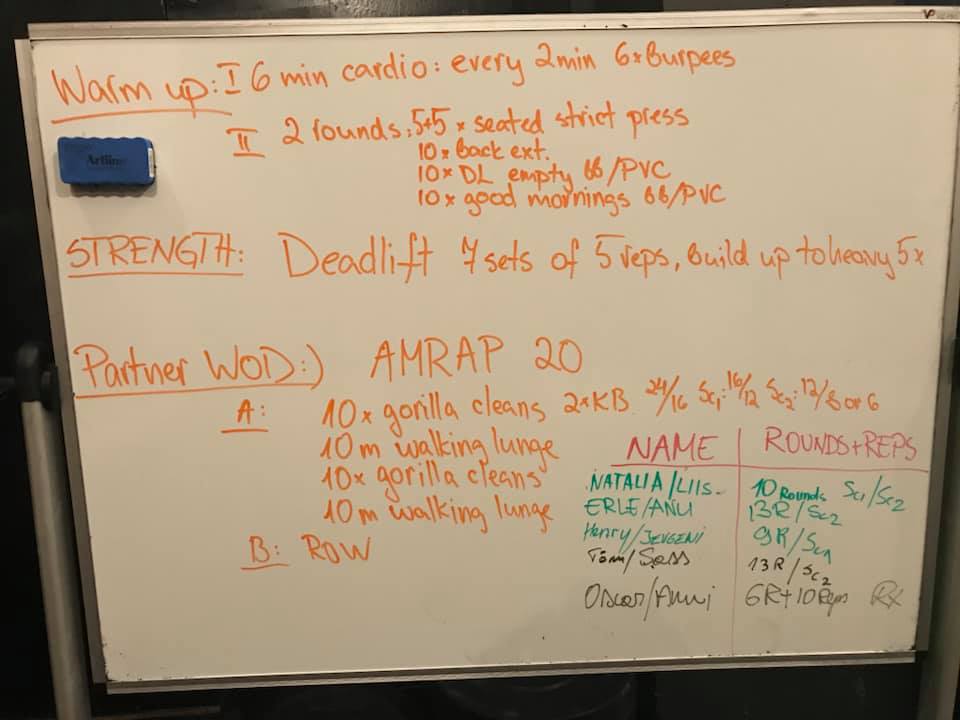 Warm up: I 6 min cardio: every 2min 6x Burpees
II 2 rounds: 5+5 x seated strict press
10x Back ext.
10x DL empty BB/PVC
10x good mornings BB/PVC
Artline
STRENGTH: Deadlift 7 sets of 5 reps, Build up to heavy 5x
Partner WOD:) AMRAP 20
A: 10x gorilla cleans 2xKB 24/16 Sc1:16/12 Sc2:12/8 or 6
10m walking lunge
10x gorilla cleans
10m walking lunge
B: ROW
NAME ROUNDS+REPS
NATALIA/LIIS 10 Rounds Sc1/Sc2
ERLE/ANU 13R/Sc2
Henry/JEVGENI 9R/Sc1
Tom/Sass 13R/Sc2
Oscar/Anni 6R+10Reps Rx